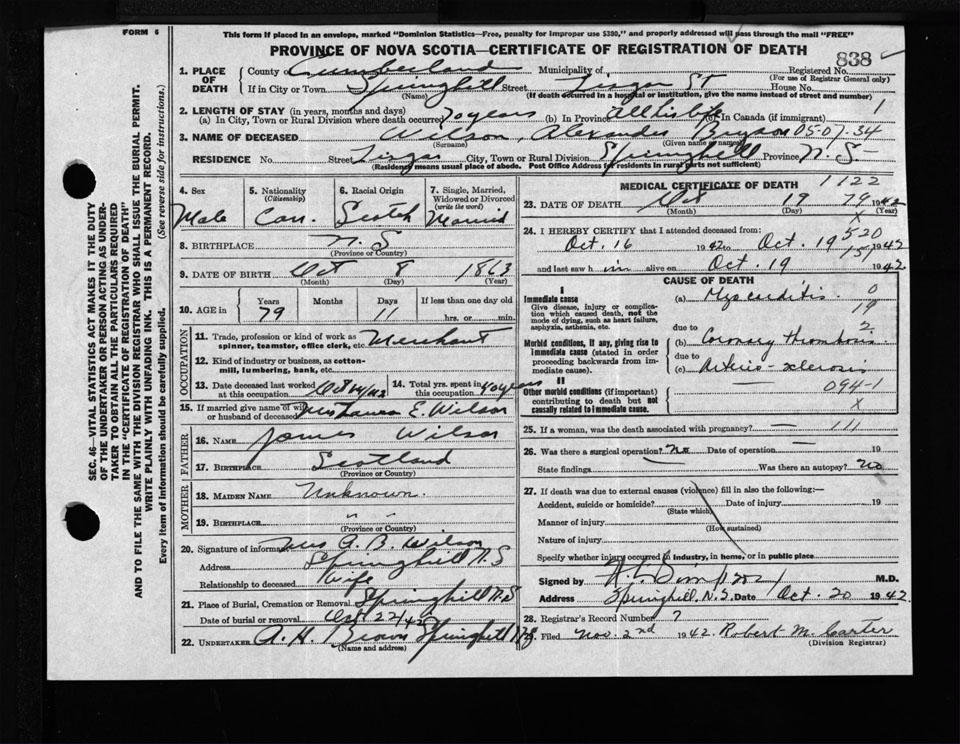 FORM 6
This form if placed in an envelope, marked "Dominion Statistics—Free, penalty for improper use $300," and properly addressed will pass through the mail "FREE"
PROVINCE OF NOVA SCOTIA—CERTIFICATE OF REGISTRATION OF DEATH
838
1. PLACE OF DEATH County of Cumberland Municipality of Registered No. (For use of Registrar General only)
If in City or Town Springhill (Name) Street Lisgar ST House No.
(If death occurred in a hospital or institution, give the name instead of street and number)
2. LENGTH OF STAY (in years, months and days)
(a) In City, Town or Rural Division where death occurred 70 years (b) In Province All his life (c) In Canada (if immigrant) 1
3. NAME OF DECEASED Wilson, Alexander Bryson 05-07-34
(Surname) (Given name or names)
RESIDENCE No. Street Lisgar City, Town or Rural Division Springhill Province N.S.
(Residence means usual place of abode. Post Office Address for residents in rural parts not sufficient)
4. Sex Male
5. Nationality (Citizenship) Can.
6. Racial Origin Scotch
7. Single, Married, Widowed or Divorced (write the word) Married
8. BIRTHPLACE N.S
(Province or Country)
9. DATE OF BIRTH Oct 8 1863
(Month) (Day) (Year)
10. AGE in Years 79 Months Days 11 If less than one day old hrs. or min.
OCCUPATION
11. Trade, profession or kind of work as spinner, teamster, office clerk, etc. Merchant
12. Kind of industry or business, as cotton-mill, lumbering, bank, etc.
13. Date deceased last worked at this occupation Oct 14/42
14. Total yrs. spent in this occupation 40 years
15. If married give name of wife or husband of deceased Mrs Laura E. Wilson
FATHER
16. NAME James Wilson
17. BIRTHPLACE Scotland
(Province or Country)
MOTHER
18. MAIDEN NAME Unknown.
19. BIRTHPLACE " "
(Province or Country)
20. Signature of informant Mrs A. B Wilson
Address Springhill N.S
Relationship to deceased Wife
21. Place of Burial, Cremation or Removal Springhill N.S
Date of burial or removal Oct 22/42
22. UNDERTAKER A. H. Brown Springhill N.S
(Name and address)
MEDICAL CERTIFICATE OF DEATH 1122
23. DATE OF DEATH Oct 19 79 1942
(Month) (Day) (Year)
X
24. I HEREBY CERTIFY that I attended deceased from: 520
Oct. 16 1942 to Oct. 19 1942
151
and last saw him alive on Oct. 19 1942
CAUSE OF DEATH
I
Immediate cause
Give disease, injury or complication which caused death, not the mode of dying, such as heart failure, asphyxia, asthenia, etc.
(a) Myocarditis. 0
19
due to 2
Morbid conditions, if any, giving rise to immediate cause (stated in order proceeding backwards from immediate cause).
(b) Coronary thrombosis
due to
(c) Arterio-sclerosis
II
Other morbid conditions (if important) contributing to death but not causally related to immediate cause.
094-1
X
25. If a woman, was the death associated with pregnancy? — 111
26. Was there a surgical operation? No Date of operation 19
State findings — Was there an autopsy? no
27. If death was due to external causes (violence) fill in also the following:—
Accident, suicide or homicide? Date of injury 19
(State which)
Manner of injury
(How sustained)
Nature of injury
Specify whether injury occurred in industry, in home, or in public place
Signed by Simpson M.D.
Address Springhill, N.S. Date Oct. 20 1942
28. Registrar's Record Number 7
29. Filed Nov. 2nd 1942. Robert M. Carter
(Division Registrar)
SEC. 46—VITAL STATISTICS ACT MAKES IT THE DUTY
OF THE UNDERTAKER OR PERSON ACTING AS UNDER-
TAKER TO OBTAIN ALL THE PARTICULARS REQUIRED
IN THE "CERTIFICATE OF REGISTRATION OF DEATH"
AND TO FILE THE SAME WITH THE DIVISION REGISTRAR WHO SHALL ISSUE THE BURIAL PERMIT.
WRITE PLAINLY WITH UNFADING INK. THIS IS A PERMANENT RECORD.
Every item of information should be carefully supplied. (See reverse side for instructions.)